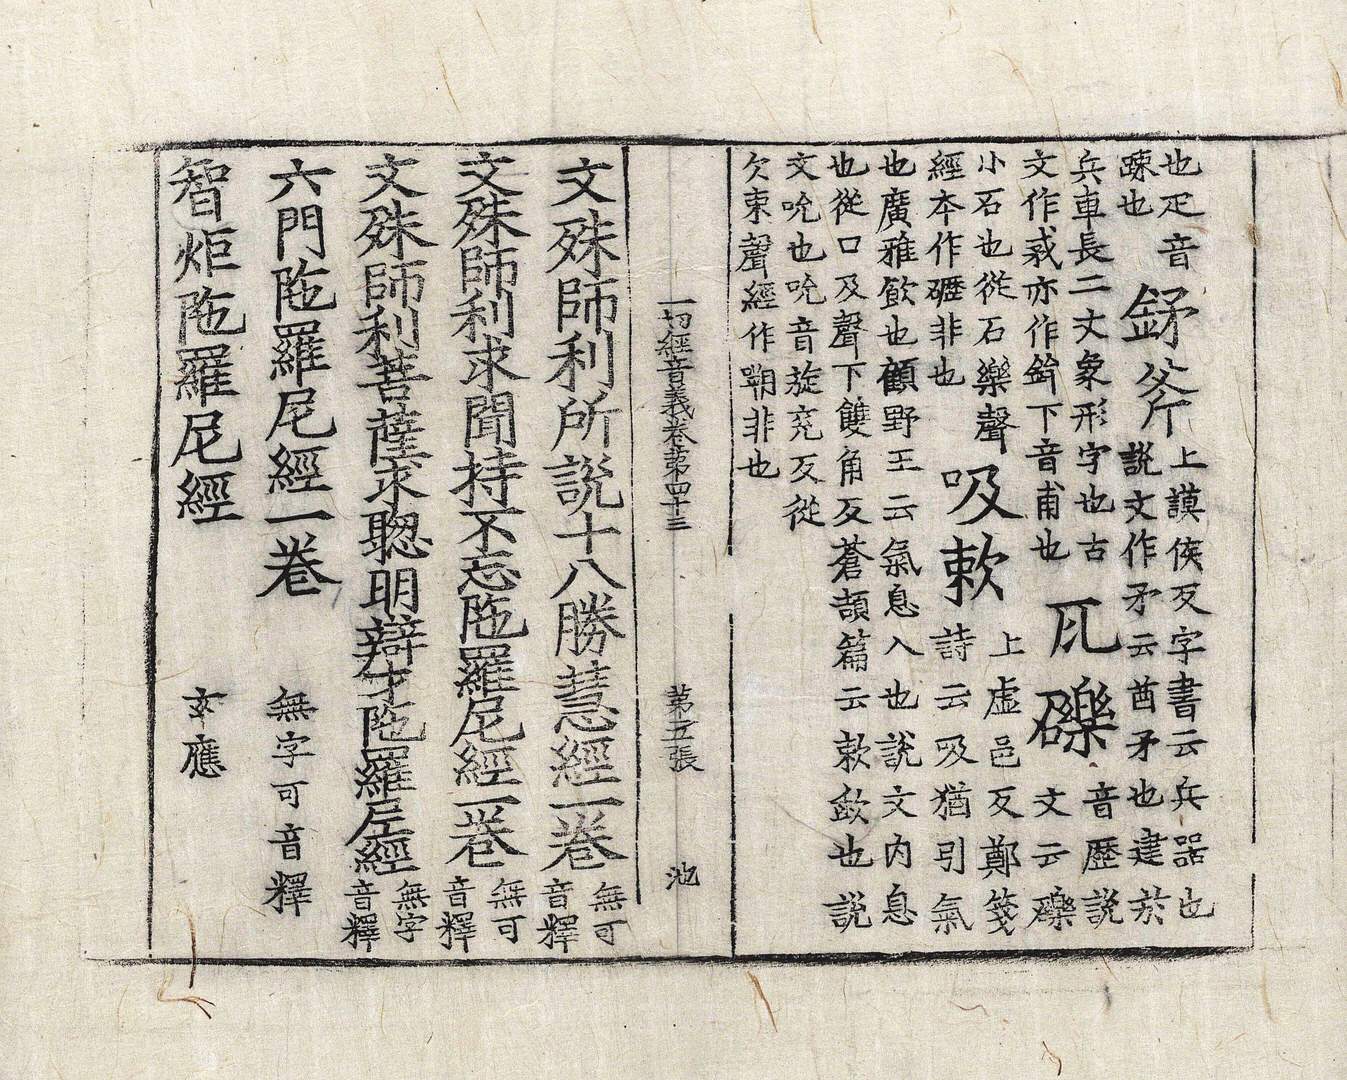 也疋音
疎也
𨥨斧
上謨侯反字書云兵器也
說文作矛云酋矛也建於
兵車長二丈象形字也古
文作𢦧亦作鉾下音甫也
瓦礫
音歷說
文云礫
小石也從石樂聲
經本作礰非也
吸欶
上虛邑反鄭箋
詩云吸猶引氣
也廣雅飲也顧野王云氣息入也說文內息
也從口及聲下雙角反蒼頡篇云欶歛也說
文吮也吮音旋兖反從
欠束聲經作嗍非也
一切經音義卷第四十三 第五張 池
文殊師利所說十八勝慧經一卷
無可
音釋
文殊師利求聞持不忘陁羅尼經一卷
無可
音釋
文殊師利菩薩求聦明辯才陁羅尼經
無字
音釋
六門陁羅尼經一卷 無字可音釋
智炬陁羅尼經 玄應